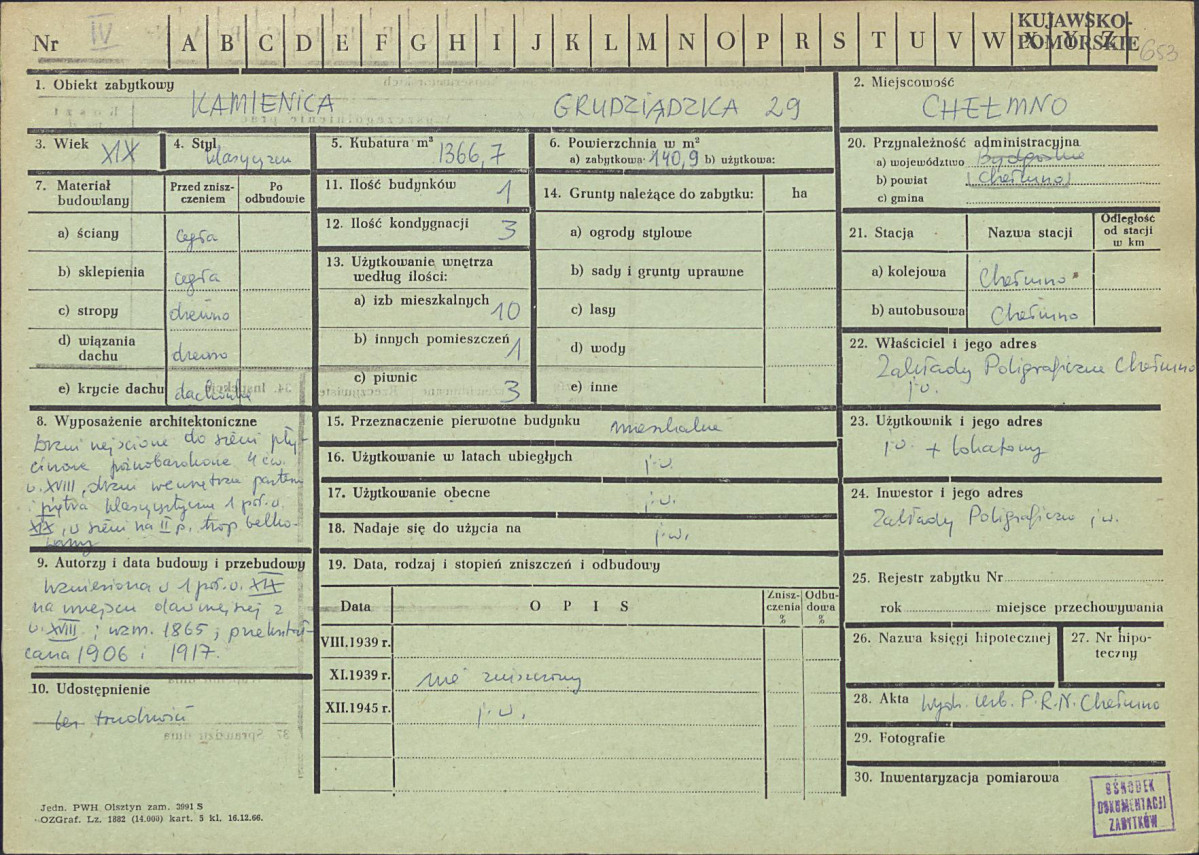 Nr IV A B C D E F G H I J K L M N O P R S T U V W X Y Z
KUJAWSKO-
POMORSKIE
653
1. Obiekt zabytkowy
KAMIENICA GRUDZIĄDZKA 29
2. Miejscowość
CHEŁMNO
3. Wiek
XIX
4. Styl
klasycyzm
5. Kubatura m³
1366,7
6. Powierzchnia w m²
a) zabytkowa: 140,9 b) użytkowa:
20. Przynależność administracyjna
a) województwo Bydgoskie
b) powiat (Chełmno)
c) gmina
7. Materiał
budowlany
Przed znisz-
czeniem
Po
odbudowie
a) ściany cegła
b) sklepienia cegła
c) stropy drewno
d) wiązania
dachu drewno
e) krycie dachu dachówka
11. Ilość budynków 1
12. Ilość kondygnacji 3
13. Użytkowanie wnętrza
według ilości:
a) izb mieszkalnych 10
b) innych pomieszczeń 1
c) piwnic 3
14. Grunty należące do zabytku: ha
a) ogrody stylowe
b) sady i grunty uprawne
c) lasy
d) wody
e) inne
21. Stacja Nazwa stacji
Odległość
od stacji
w km
a) kolejowa Chełmno
b) autobusowa Chełmno
22. Właściciel i jego adres
Zakłady Poligraficzne Chełmno
j.w.
8. Wyposażenie architektoniczne
Drzwi wejściowe do sieni pły-
cinowe późnobarokowe 4 ćw.
w. XVIII, drzwi wewnętrzne parteru
i piętra klasycystyczne 1 poł. w.
XIX, w sieni na II p. strop belko-
wany
15. Przeznaczenie pierwotne budynku mieszkalne
16. Użytkowanie w latach ubiegłych j.w.
17. Użytkowanie obecne j.w.
18. Nadaje się do użycia na j.w.
23. Użytkownik i jego adres
j.w. + lokatorzy
24. Inwestor i jego adres
Zakłady Poligraficzne j.w.
9. Autorzy i data budowy i przebudowy
Wzniesiona w 1 poł. w. XIX
na miejscu dawniejszej z
w. XVIII; wzm. 1865; przekształ-
cana 1906 i 1917.
19. Data, rodzaj i stopień zniszczeń i odbudowy
Data OPIS
Znisz-
czenia
%
Odbu-
dowa
%
VIII.1939 r.
XI.1939 r. nie zniszczony
XII.1945 r. j.w.
25. Rejestr zabytku Nr
rok miejsce przechowywania
26. Nazwa księgi hipotecznej
27. Nr hipo-
teczny
28. Akta Wydz. Urb. P.R.N. Chełmno
29. Fotografie
30. Inwentaryzacja pomiarowa
10. Udostępnienie
bez trudności
OŚRODEK
DOKUMENTACJI
ZABYTKÓW
Jedn. PWH Olsztyn zam. 2991 S
OZGraf. Lz. 1882 (14.000) kart. 5 kl. 16.12.66.